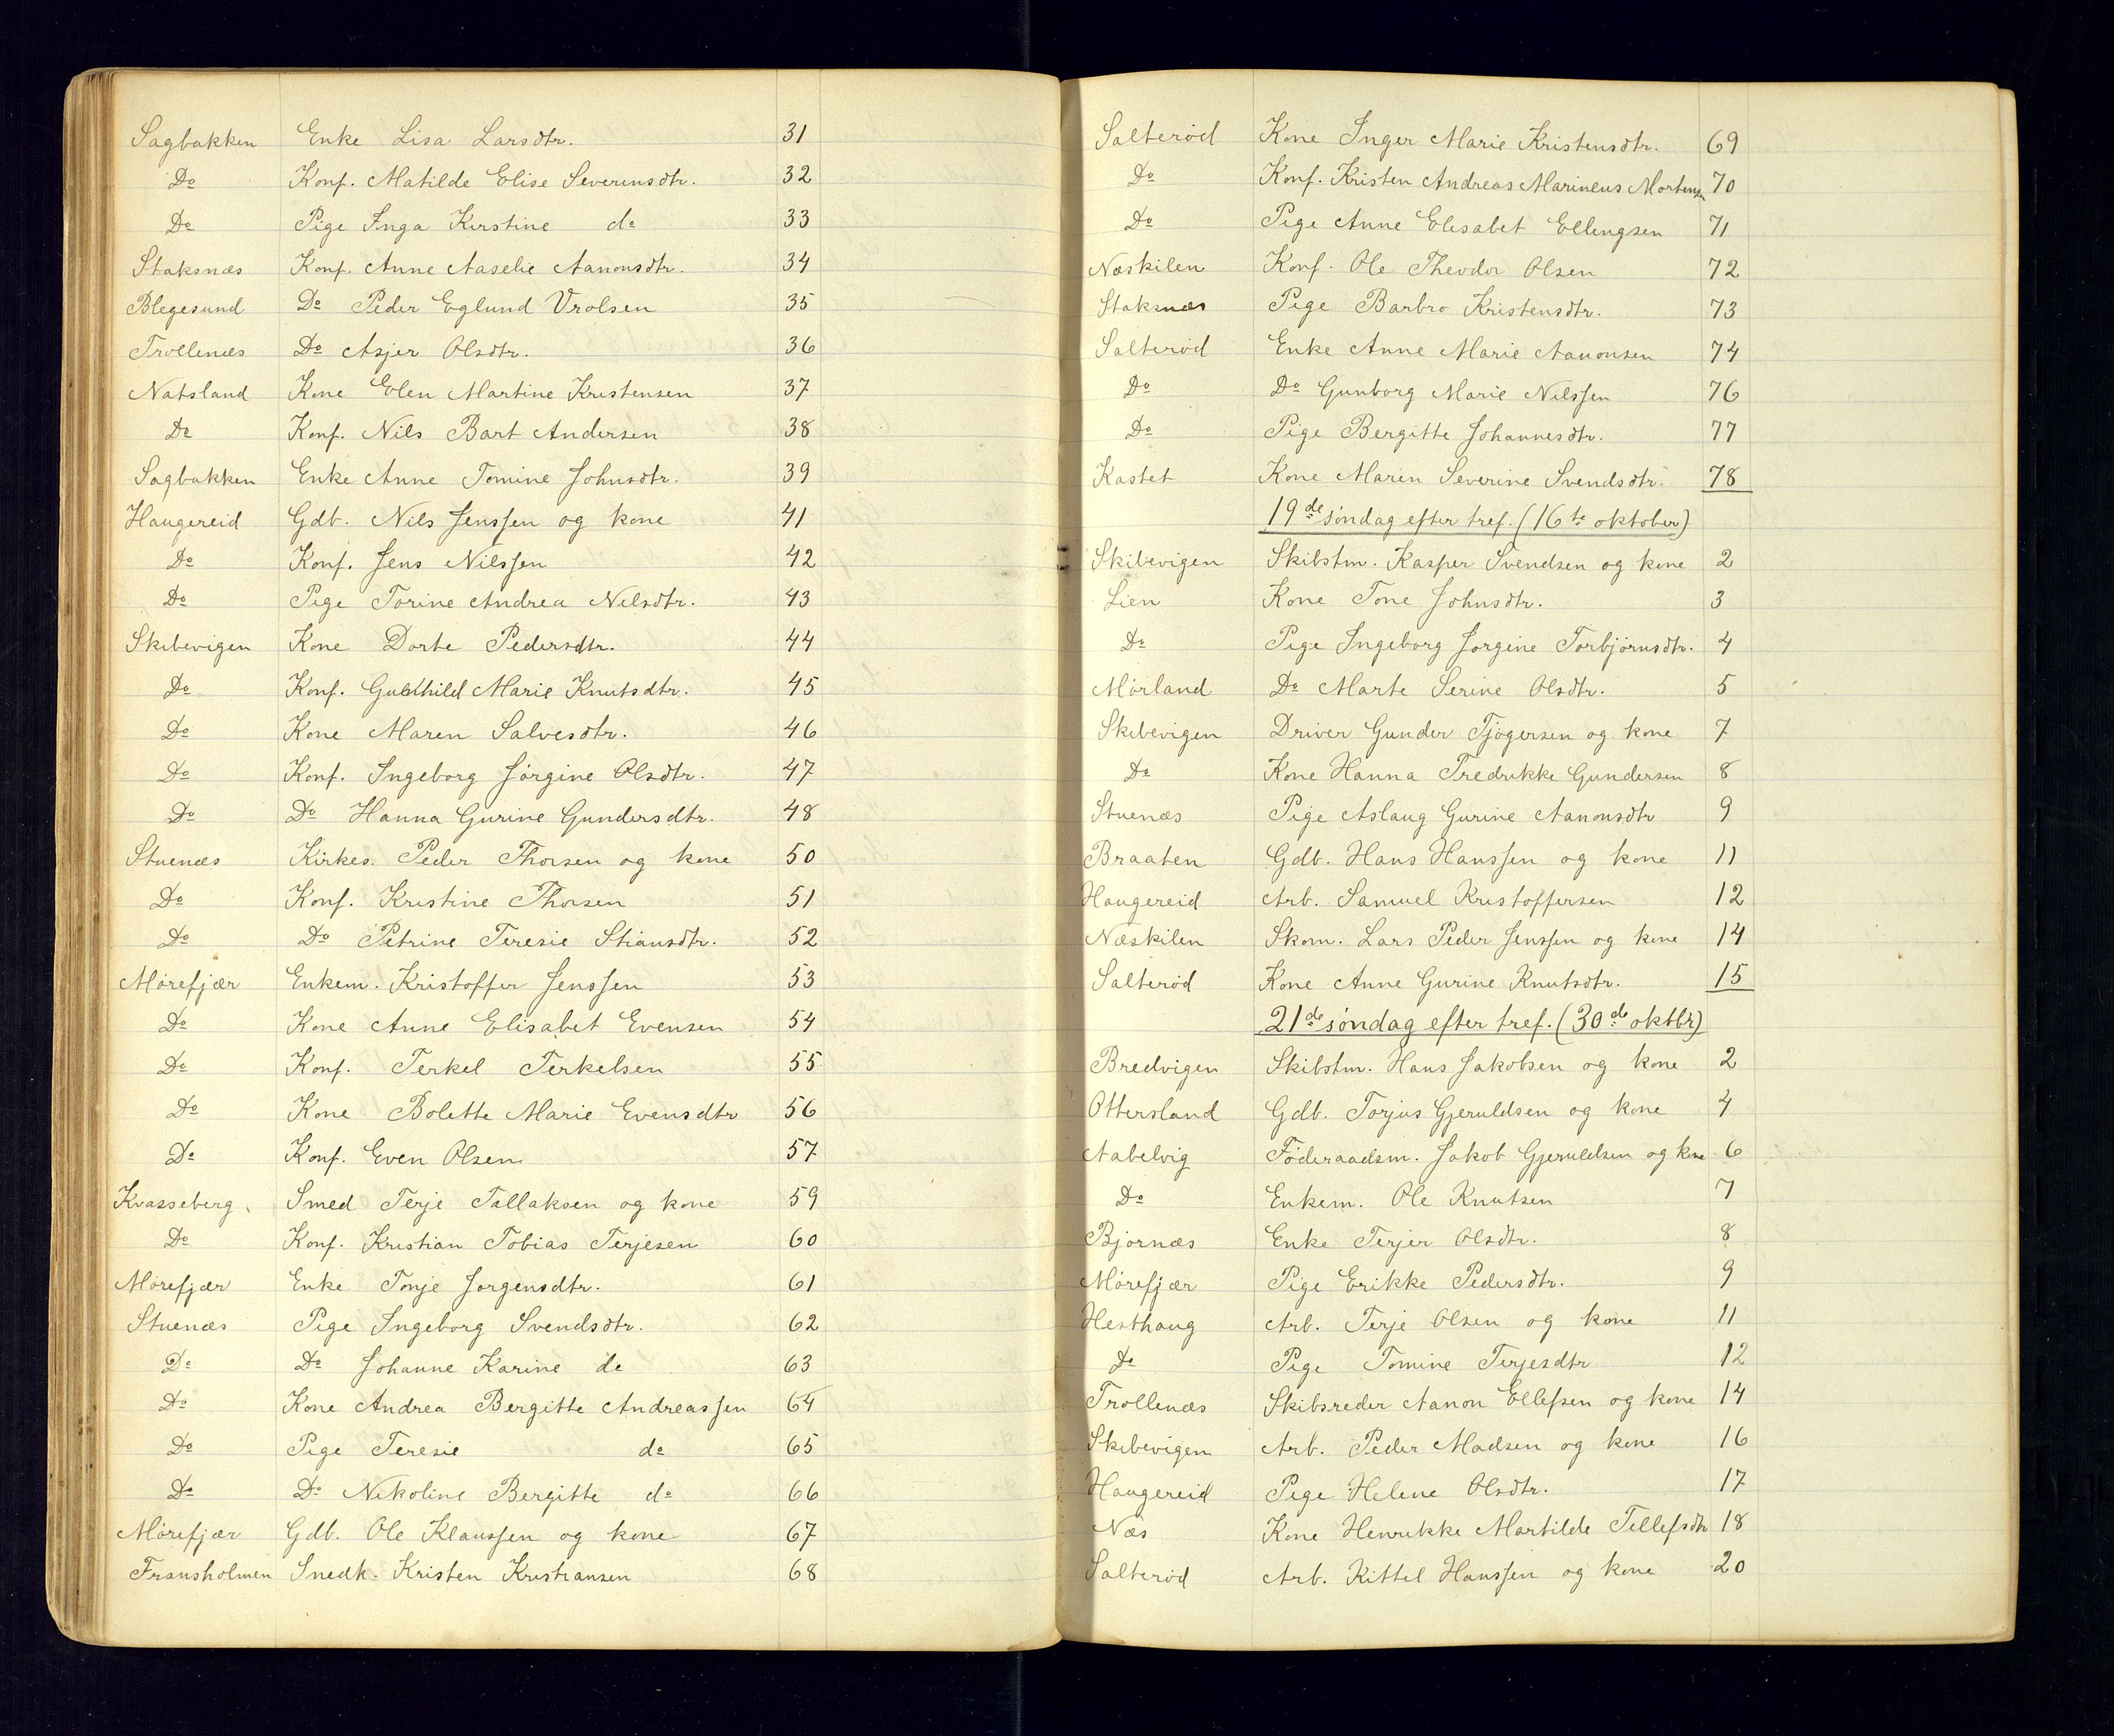 Sagbakken Enke Lisa Larsdtr. 31
Do Konf. Matilde Elise Severinsdtr. 32
Do Pige Inga Kirstine do 33
Staksnæs Konf. Anne Aaselie Aanonsdtr. 34
Blegesund Do Peder Eglund Vrolsen 35
Trollenæs Do Asjer Olsdtr. 36
Natsland Kone Elen Martine Kristensen 37
Do Konf. Nils Bart Andersen 38
Sagbakken Enke Anne Tomine Johnsdtr. 39
Haugereid Gdb. Nils Jenssen og kone 41
Do Konf. Jens Nilssen 42
Do Pige Torine Andrea Nilsdtr. 43
Skibevigen Kone Dorte Pedersdtr. 44
Do Konf. Gunhild Marie Knutsdtr. 45
Do Kone Maren Salvesdtr. 46
Do Konf. Ingeborg Jørgine Olsdtr. 47
Do Do Hanna Gurine Gundersdtr. 48
Stuenæs Kirkes. Peder Thorsen og kone 50
Do Konf. Kristine Thorsen 51
Do Do Petrine Teresie Stiansdtr. 52
Mørefjær Enkem. Kristoffer Jenssen 53
Do Kone Anne Elisabet Evensen 54
Do Konf. Terkel Terkelsen 55
Do Kone Bolette Marie Evensdtr 56
Do Konf. Even Olsen 57
Kvasseberg Smed Terje Tallaksen og kone 59
Do Konf. Kristian Tobias Terjesen 60
Mørefjær Enke Tonje Jørgensdtr. 61
Stuenæs Pige Ingeborg Svendsdtr. 62
Do Do Johanne Karine do 63
Do Kone Andrea Bergitte Andreassen 64
Do Pige Teresie do 65
Do Do Nikoline Bergitte do 66
Mørefjær Gdb. Ole Klaussen og kone 67
Fransholmen Snedk. Kristen Kristiansen 68
Salterød Kone Inger Marie Kristensdtr. 69
Do Konf. Kristen Andreas Marineus Mortensn 70
Do Pige Anne Elisabet Ellingsen 71
Næskilen Konf. Ole Theodor Olsen 72
Staksnæs Pige Barbro Kristensdtr. 73
Salterød Enke Anne Marie Aanonsen 74
Do Do Gunborg Marie Nilssen 76
Do Pige Bergitte Johannesdtr. 77
Kastet Kone Maren Severine Svendsdtr. 78
19de søndag efter tref. (16te oktober)
Skibevigen Skibstm. Kasper Svendsen og kone 2
Lien Kone Tone Johnsdtr. 3
Do Pige Ingeborg Jørgine Torbjørnsdtr. 4
Mørland Do Marte Serine Olsdtr. 5
Skibevigen Driver Gunder Tjøgersen og kone 7
Do Kone Hanna Fredrikke Gundersen 8
Stuenæs Pige Aslaug Gurine Aanonsdtr 9
Braaten Gdb. Hans Hanssen og kone 11
Haugereid Arb. Samuel Kristoffersen 12
Næskilen Skom. Lars Peder Jenssen og kone 14
Salterød Kone Anne Gurine Knutsdtr. 15
21de søndag efter tref. (30de oktbr)
Bredvigen Skibstm. Hans Jakobsen og kone 2
Ottersland Gdb. Torjus Gjeruldsen og kone 4
Aabelvig Føderaadsm. Jakob Gjeruldsen og kne 6
Do Enkem. Ole Knutsen 7
Bjørnæs Enke Terjer Olsdtr. 8
Mørefjær Pige Erikke Pedersdtr. 9
Hesthaug Arb. Terje Olsen og kone 11
Do Pige Tomine Terjesdtr 12
Trollenæs Skibsreder Aanon Ellefsen og kone 14
Skibevigen Arb. Peder Madsen og kone 16
Haugereid Pige Helene Olsdtr. 17
Næs Kone Henrikke Martilde Tellefsdtr 18
Salterød Arb. Kittel Hanssen og kone 20